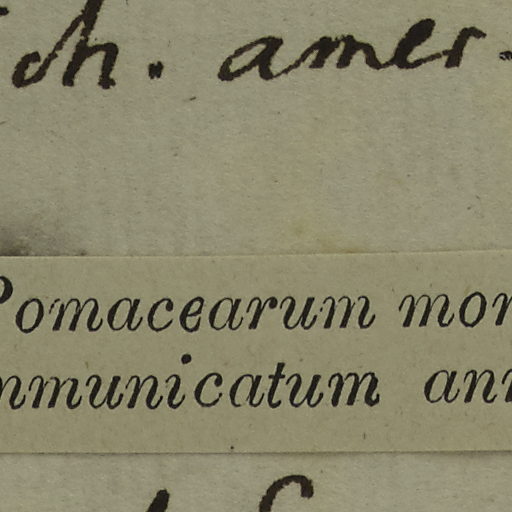 amer.
Pomacearum mon
mmunicatum ann